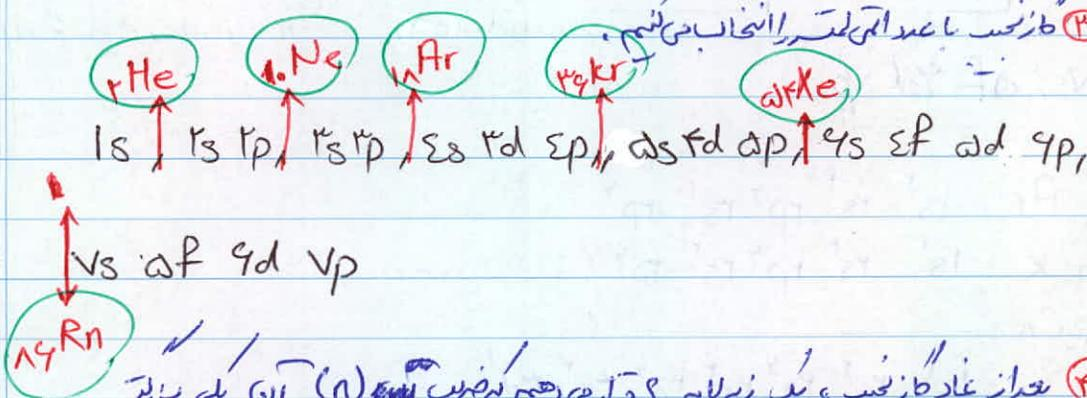 ۳ گاز نجیب با عدد اتمی کمتر را انتخاب می‌کنیم.
۲He ۱۰Ne ۱۸Ar ۳۶Kr ۵۴Xe
1s, ۲s ۲p, ۳s ۳p, ٤s ۳d ٤p, ۵s ۴d ۵p, ۶s ٤f ۵d ۶p,
۷s ۵f ۶d ۷p
۸۶Rn
۴ بعد از نماد گاز نجیب، یک زیرلایه s قرار می‌دهیم که ضریب (n) آن یکی